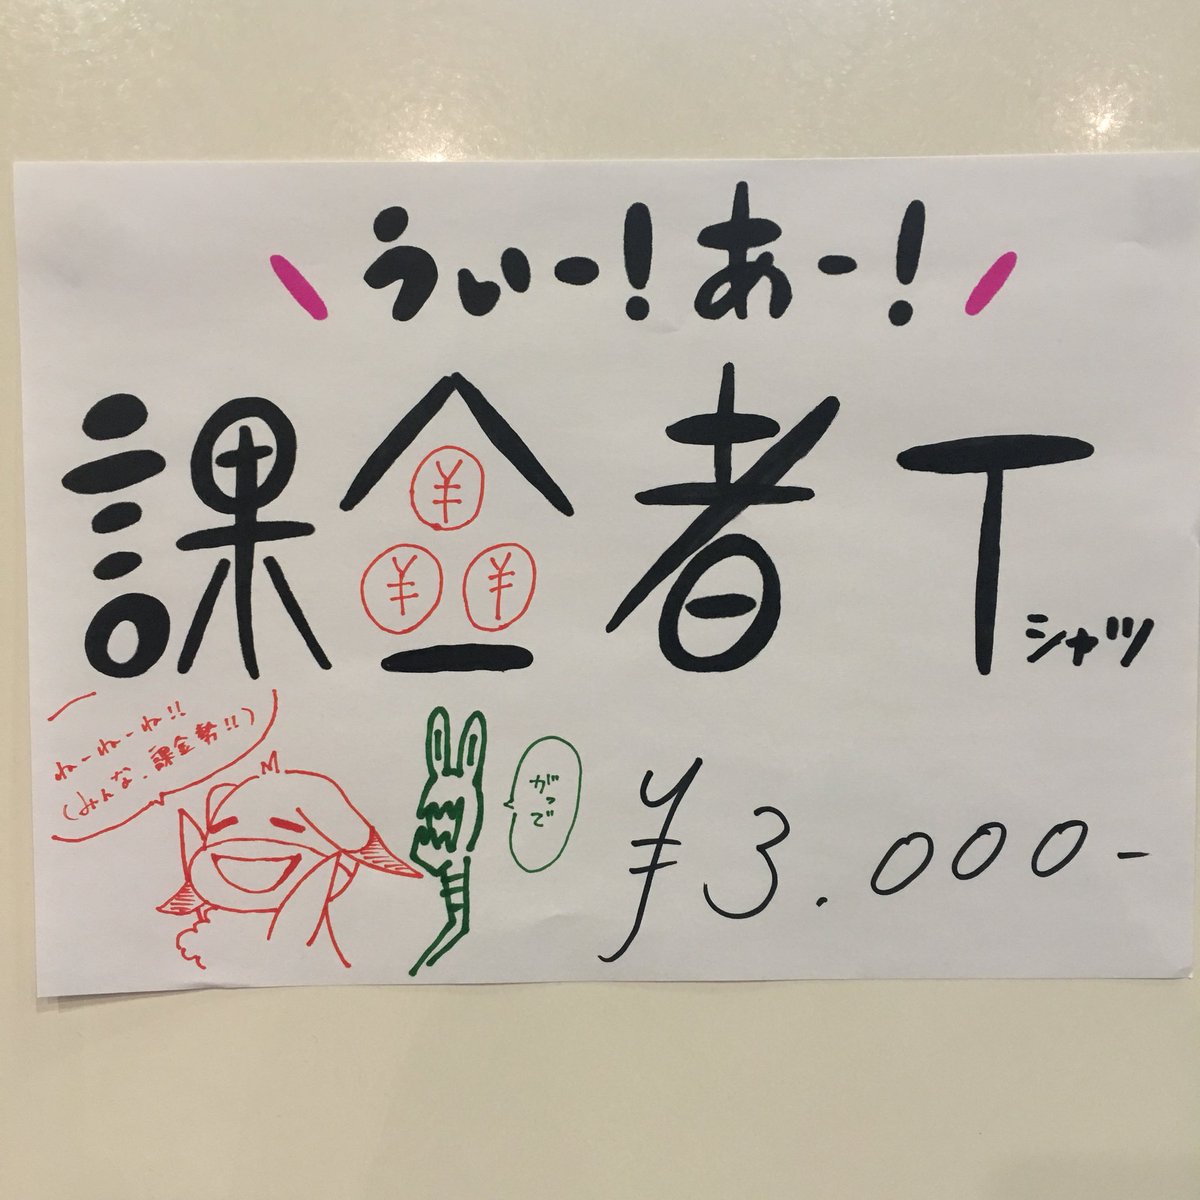 うぃー!あー!
課金者Tシャツ
¥ ¥ ¥
ねーねーね!!
(みんな、課金勢!!)
がってで
¥3.000-